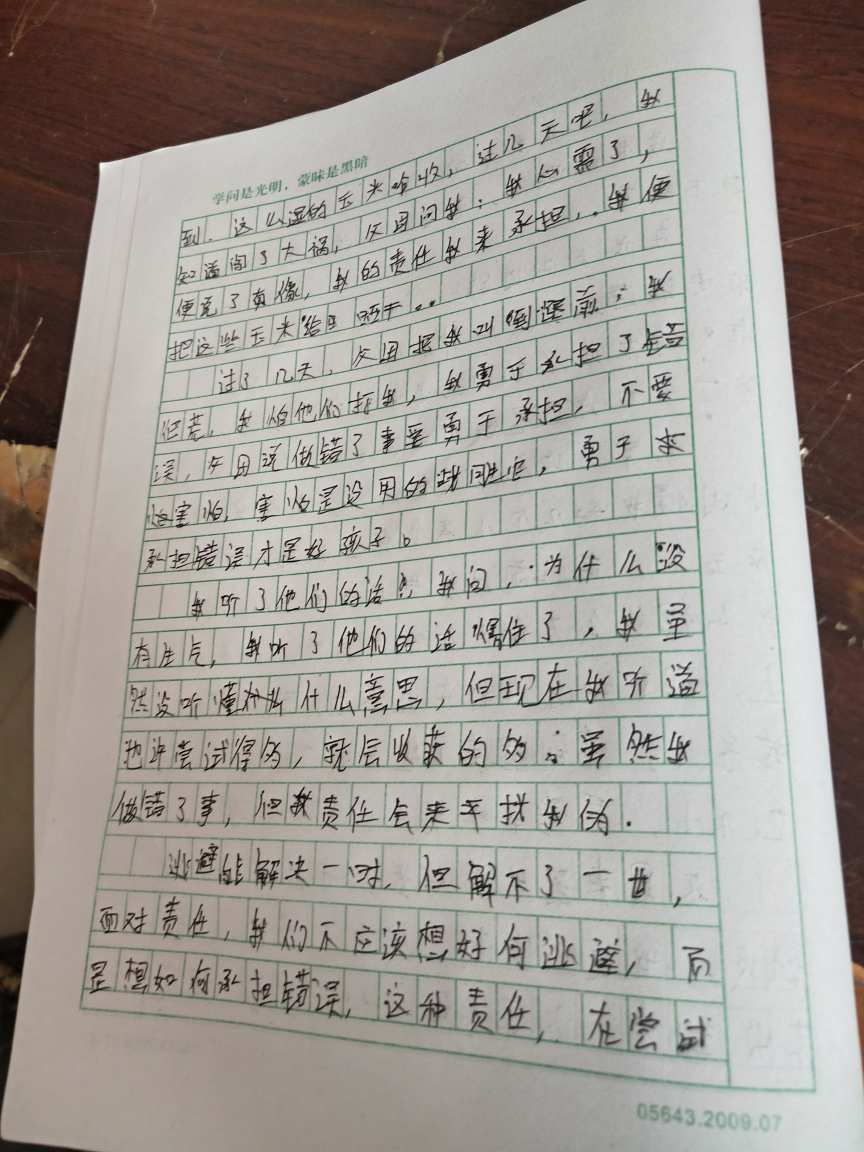 学问是光明，蒙昧是黑暗
到，这么湿的玉米啥收，过几天吧，我
知道闯了大祸，父母问我：我心需了，
便完了真像，我的责任我来承担，我便
把这些玉米给 晒干。
过了几天，父母把我叫到 前：我
很荒，我怕他们打我，我勇于承担了错
误，父母说做错了事要勇于承担，不要
害怕，害怕是没用的 ，勇于
承担错误才是好孩子。
我听了他们的话，我问，为什么没
有生气，我听了他们的话愣住了，我虽
然没听懂 什么意思，但现在我听道
也许尝试得多，就会收获的多；虽然我
做错了事，但我责任会来寻找我的．
逃避能解决一时，但解不了一世，
面对责任，我们不应该想好何逃避，而
是想如何承担错误，这种责任，在尝试
05643.2009.07